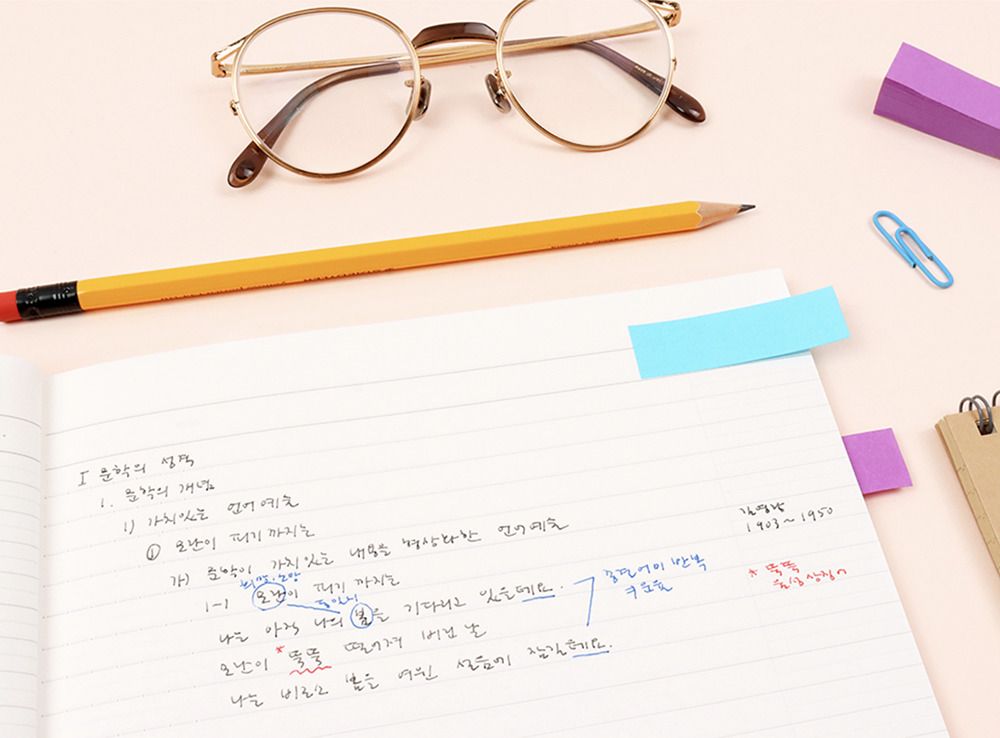 I 문학의 성격
1. 문학의 개념
1) 가치있는 언어예술
① 모란이 피기까지는
가) 문학이 가치있는 내용을 형상화한 언어예술
김영랑
1903~1950
희망, 소망
1-1 모란이 피기까지는
동일시
나는 아직 나의 봄을 기다리고 있을테요.
종결어미 반복
→운율
모란이 *뚝뚝 떨어져 버린 날
* 뚝뚝
음성상징어
나는 비로소 봄을 여윈 설움에 잠길테요.